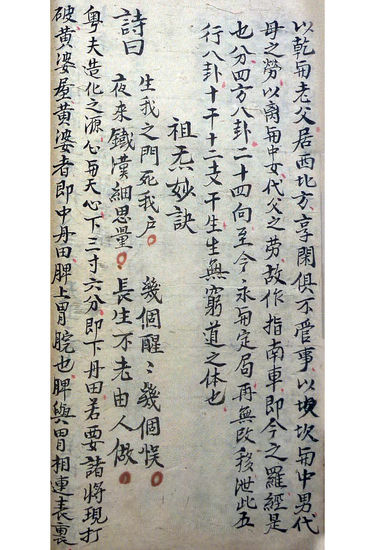 以乾為老父居西北方享閑俱不管事以坎為中男代
母之勞以离為中女代父之劳故作指南車即今之羅經是
也分四方八卦二十四向至今永為定局再無改移泄此五
行八卦十干十二支干生生無窮道之体也
祖炁妙訣
詩曰
生我之門死我户 幾個醒〻幾個悮
夜来鐵漢細思量 長生不老由人做
粤夫造化之源心為天心下三寸六分即下丹田若要諸将現打
破黄婆屋黄婆者即中丹田脾上胃脘也脾與胃相連表裏